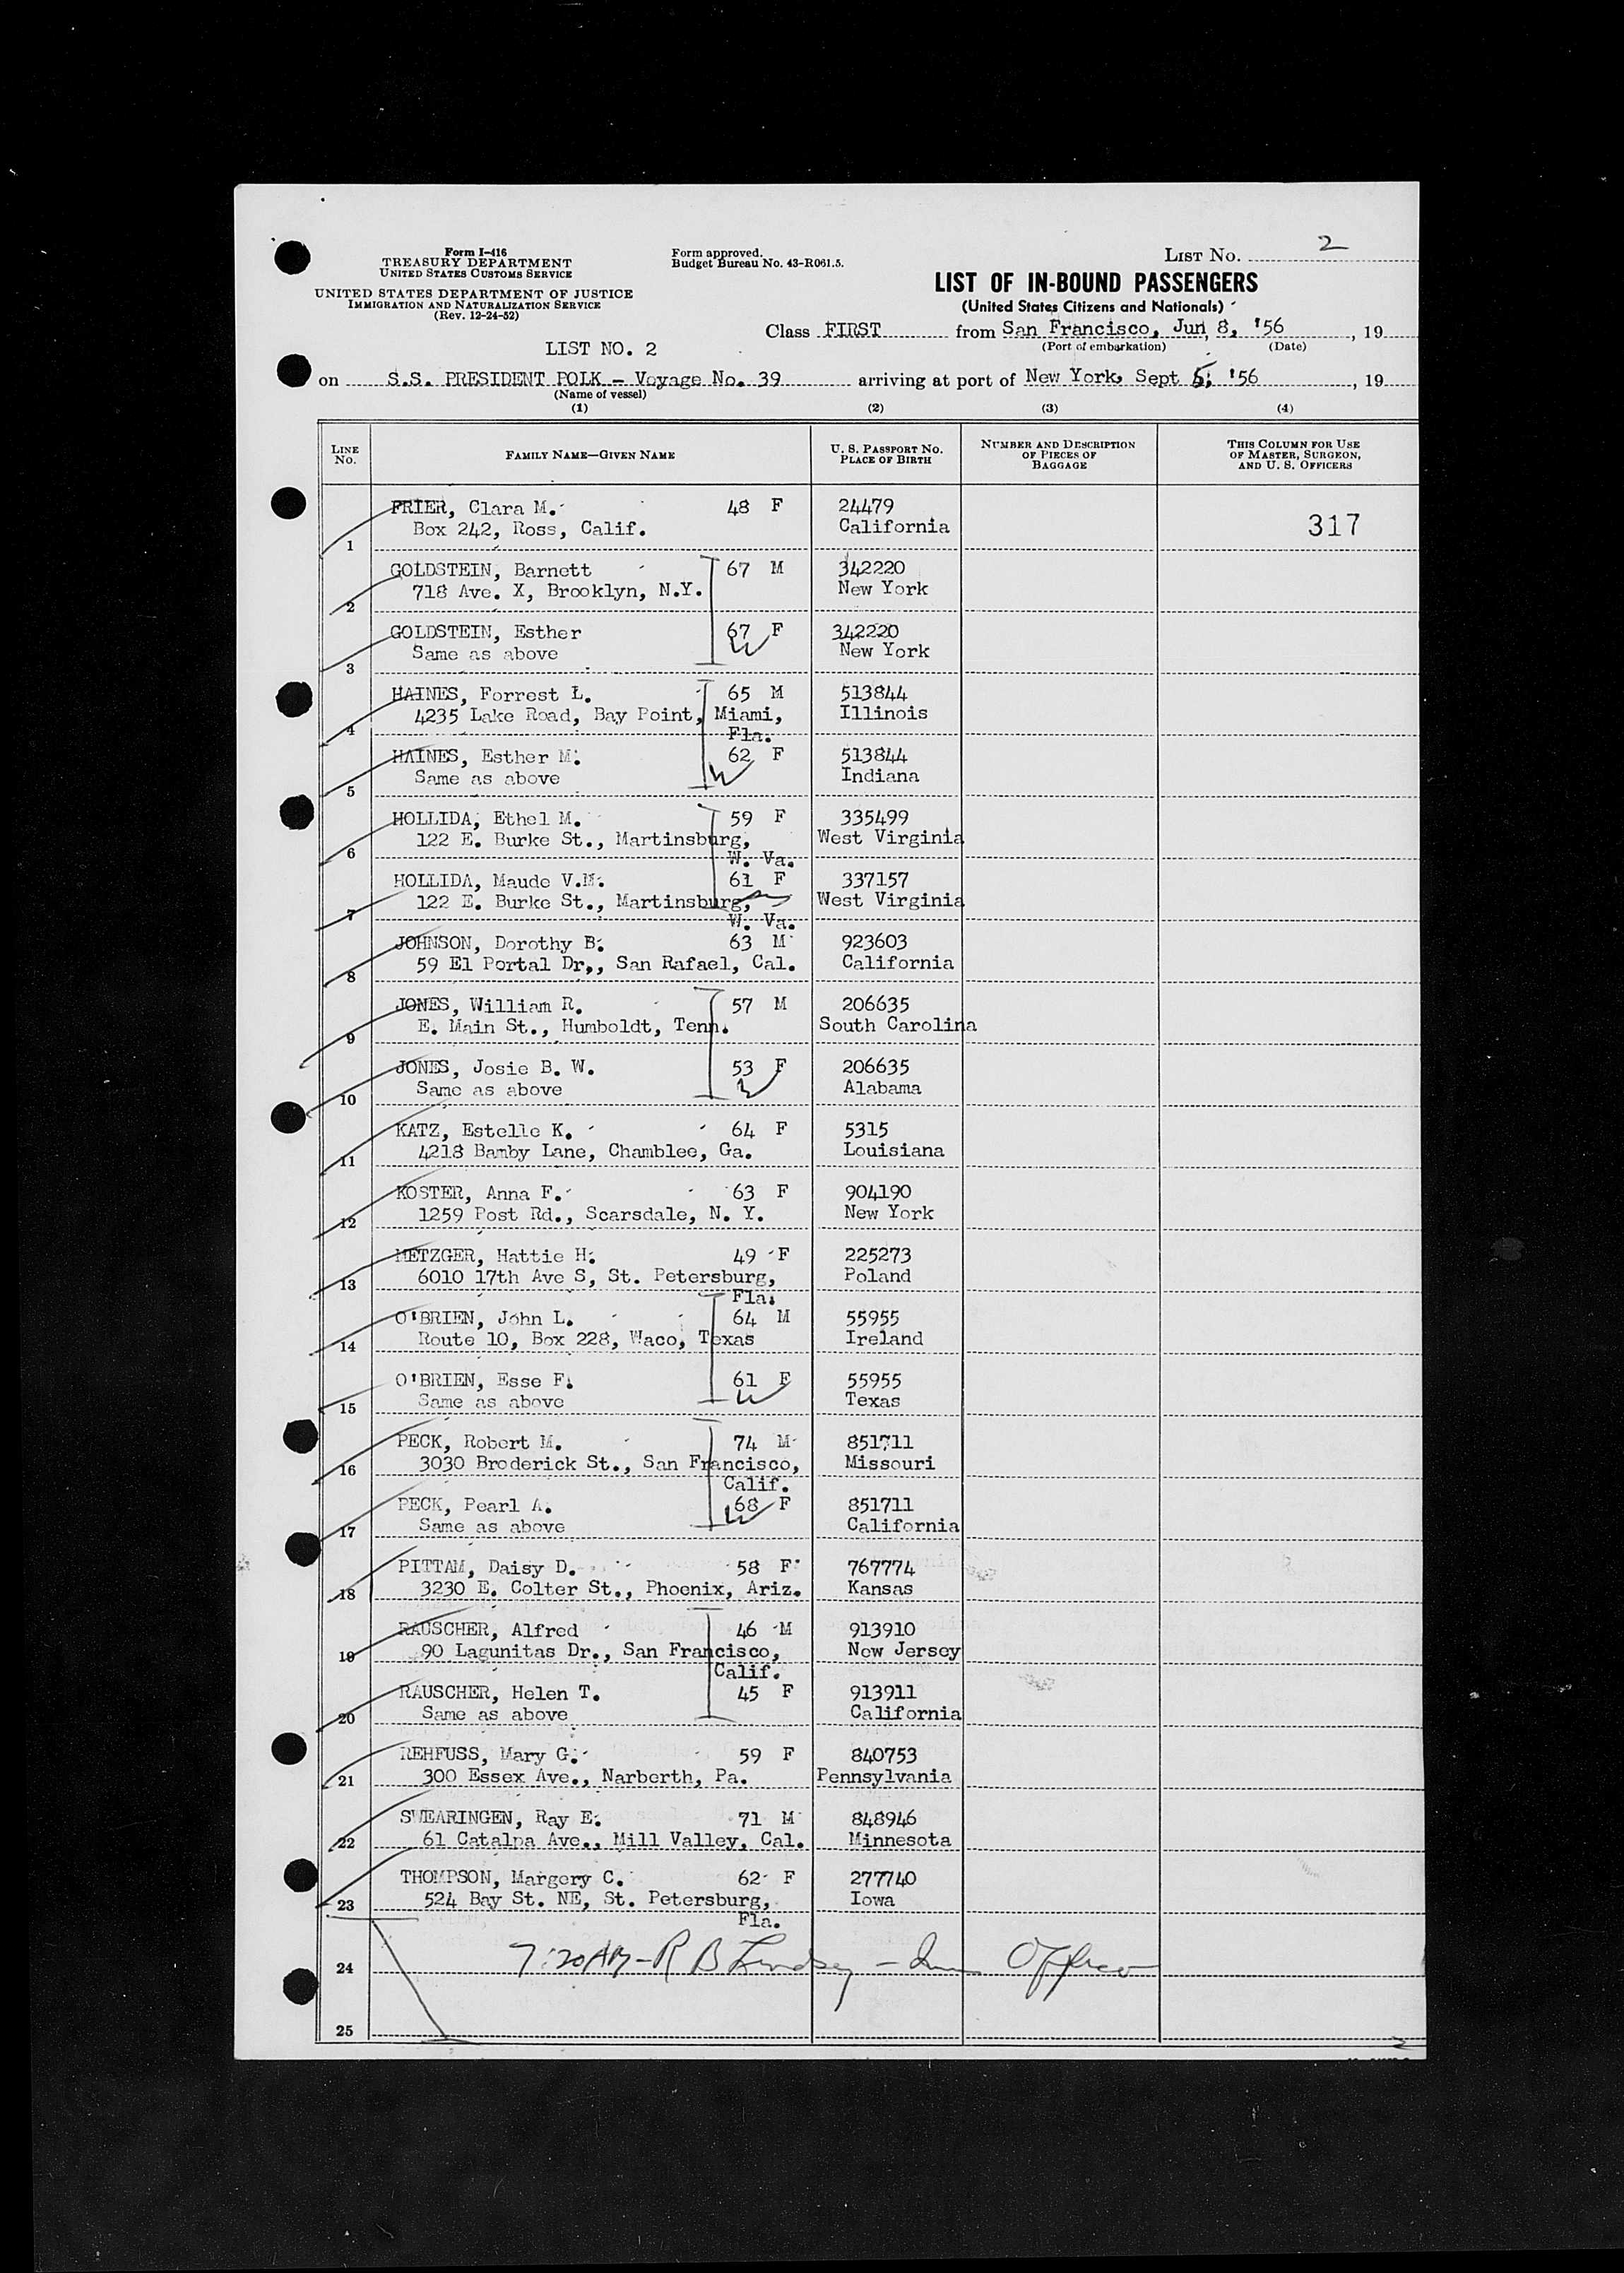 Form I-416
TREASURY DEPARTMENT
UNITED STATES CUSTOMS SERVICE
UNITED STATES DEPARTMENT OF JUSTICE
IMMIGRATION AND NATURALIZATION SERVICE
(Rev. 12-24-52)
Form approved.
Budget Bureau No. 43-R061.5.
LIST No. 2
LIST OF IN-BOUND PASSENGERS
(United States Citizens and Nationals)
Class FIRST from San Francisco, Jun 8, '56, 19
(Port of embarkation) (Date)
LIST NO. 2
on S.S. PRESIDENT POLK - Voyage No. 39 arriving at port of New York, Sept 5, '56, 19
(Name of vessel)
(1) (2) (3) (4)
LINE No. FAMILY NAME—GIVEN NAME U. S. PASSPORT NO. PLACE OF BIRTH NUMBER AND DESCRIPTION OF PIECES OF BAGGAGE THIS COLUMN FOR USE OF MASTER, SURGEON, AND U. S. OFFICERS
FRIER, Clara M. 48 F 24479
1 Box 242, Ross, Calif. California 317
GOLDSTEIN, Barnett 67 M 342220
2 718 Ave. X, Brooklyn, N.Y. New York
GOLDSTEIN, Esther 67 F 342220
3 Same as above New York
HAINES, Forrest L. 65 M 513844
4 4235 Lake Road, Bay Point, Miami, Illinois
Fla.
HAINES, Esther M. 62 F 513844
5 Same as above Indiana
HOLLIDA, Ethel M. 59 F 335499
6 122 E. Burke St., Martinsburg, West Virginia
W. Va.
HOLLIDA, Maude V.M. 61 F 337157
7 122 E. Burke St., Martinsburg, West Virginia
W. Va.
JOHNSON, Dorothy B. 63 M 923603
8 59 El Portal Dr,, San Rafael, Cal. California
JONES, William R. 57 M 206635
9 E. Main St., Humboldt, Tenn. South Carolina
JONES, Josie B. W. 53 F 206635
10 Same as above Alabama
KATZ, Estelle K. 64 F 5315
11 4218 Bamby Lane, Chamblee, Ga. Louisiana
KOSTER, Anna F. 63 F 904190
12 1259 Post Rd., Scarsdale, N. Y. New York
METZGER, Hattie H. 49 F 225273
13 6010 17th Ave S, St. Petersburg, Poland
Fla.
O'BRIEN, John L. 64 M 55955
14 Route 10, Box 228, Waco, Texas Ireland
O'BRIEN, Esse F. 61 F 55955
15 Same as above Texas
PECK, Robert M. 74 M 851711
16 3030 Broderick St., San Francisco, Missouri
Calif.
PECK, Pearl A. 68 F 851711
17 Same as above California
PITTAM, Daisy D. 58 F 767774
18 3230 E. Colter St., Phoenix, Ariz. Kansas
RAUSCHER, Alfred 46 M 913910
19 90 Lagunitas Dr., San Francisco, New Jersey
Calif.
RAUSCHER, Helen T. 45 F 913911
20 Same as above California
REHFUSS, Mary G. 59 F 840753
21 300 Essex Ave., Narberth, Pa. Pennsylvania
SWEARINGEN, Ray E. 71 M 848946
22 61 Catalpa Ave., Mill Valley, Cal. Minnesota
THOMPSON, Margery C. 62 F 277740
23 524 Bay St. NE, St. Petersburg, Iowa
Fla.
24 7:20 AM - R B Lindsey - Imm Officer
25